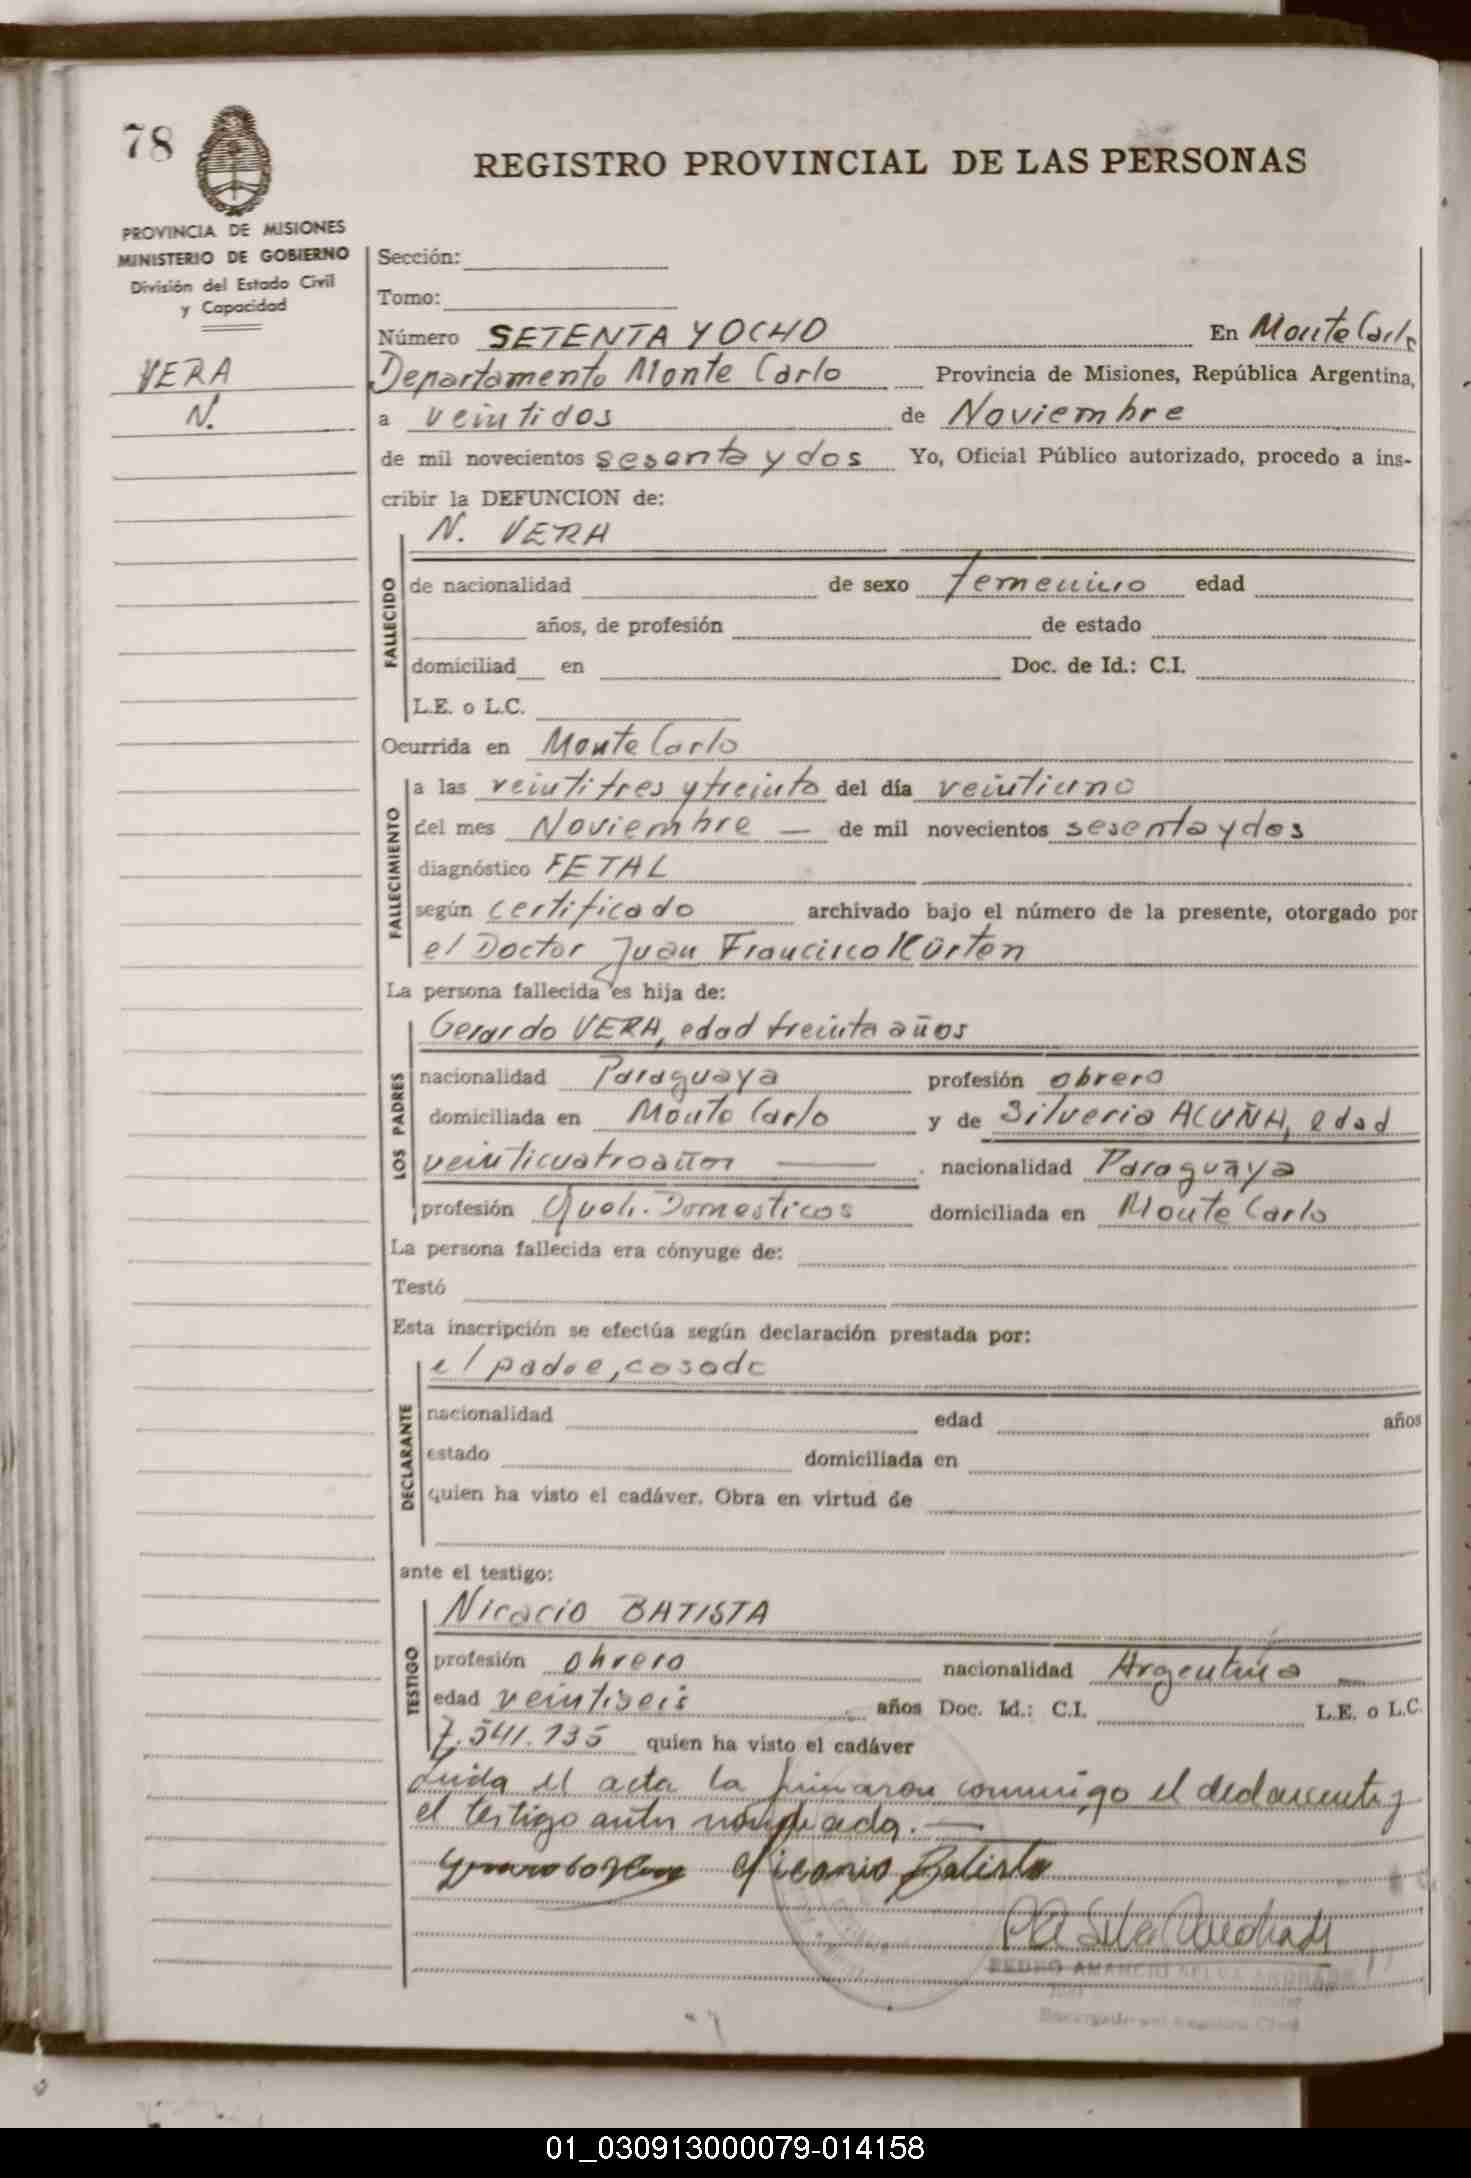 78
REGISTRO PROVINCIAL DE LAS PERSONAS
PROVINCIA DE MISIONES
MINISTERIO DE GOBIERNO
División del Estado Civil
y Capacidad
VERA
N.
Sección:
Tomo:
Número SETENTA Y OCHO En Monte Carlo
Departamento Monte Carlo Provincia de Misiones, República Argentina,
a veintidos de Noviembre
de mil novecientos sesenta y dos Yo, Oficial Público autorizado, procedo a ins-
cribir la DEFUNCION de:
N. VERA
FALLECIDO
de nacionalidad de sexo femenino edad
años, de profesión de estado
domiciliad en Doc. de Id.: C.I.
L.E. o L.C.
Ocurrida en Monte Carlo
FALLECIMIENTO
a las veintitres y treinta del día veintiuno
del mes Noviembre — de mil novecientos sesenta y dos
diagnóstico FETAL
según certificado archivado bajo el número de la presente, otorgado por
el Doctor Juan Francisco Kürten
La persona fallecida es hija de:
LOS PADRES
Gerardo VERA, edad treinta años
nacionalidad Paraguaya profesión obrero
domiciliada en Monte Carlo y de Silveria ACUÑA, edad
veinticuatro años — . nacionalidad Paraguaya
profesión Queh. Domesticos domiciliada en Monte Carlo
La persona fallecida era cónyuge de:
Testó
Esta inscripción se efectúa según declaración prestada por:
el padre, casado
DECLARANTE
nacionalidad edad años
estado domiciliada en
quien ha visto el cadáver. Obra en virtud de
ante el testigo:
TESTIGO
Nicacio BATISTA
profesión obrero nacionalidad Argentina —
edad veintiseis años Doc. Id.: C.I. L.E. o L.C.
7.541.135 quien ha visto el cadáver
Leida el acta la firmaron conmigo el declarante y
el testigo antes nombrado. —
Batista
PEDRO AMANCIO SILVA ANDRADE
Encargado del Registro Civil
01_030913000079-014158